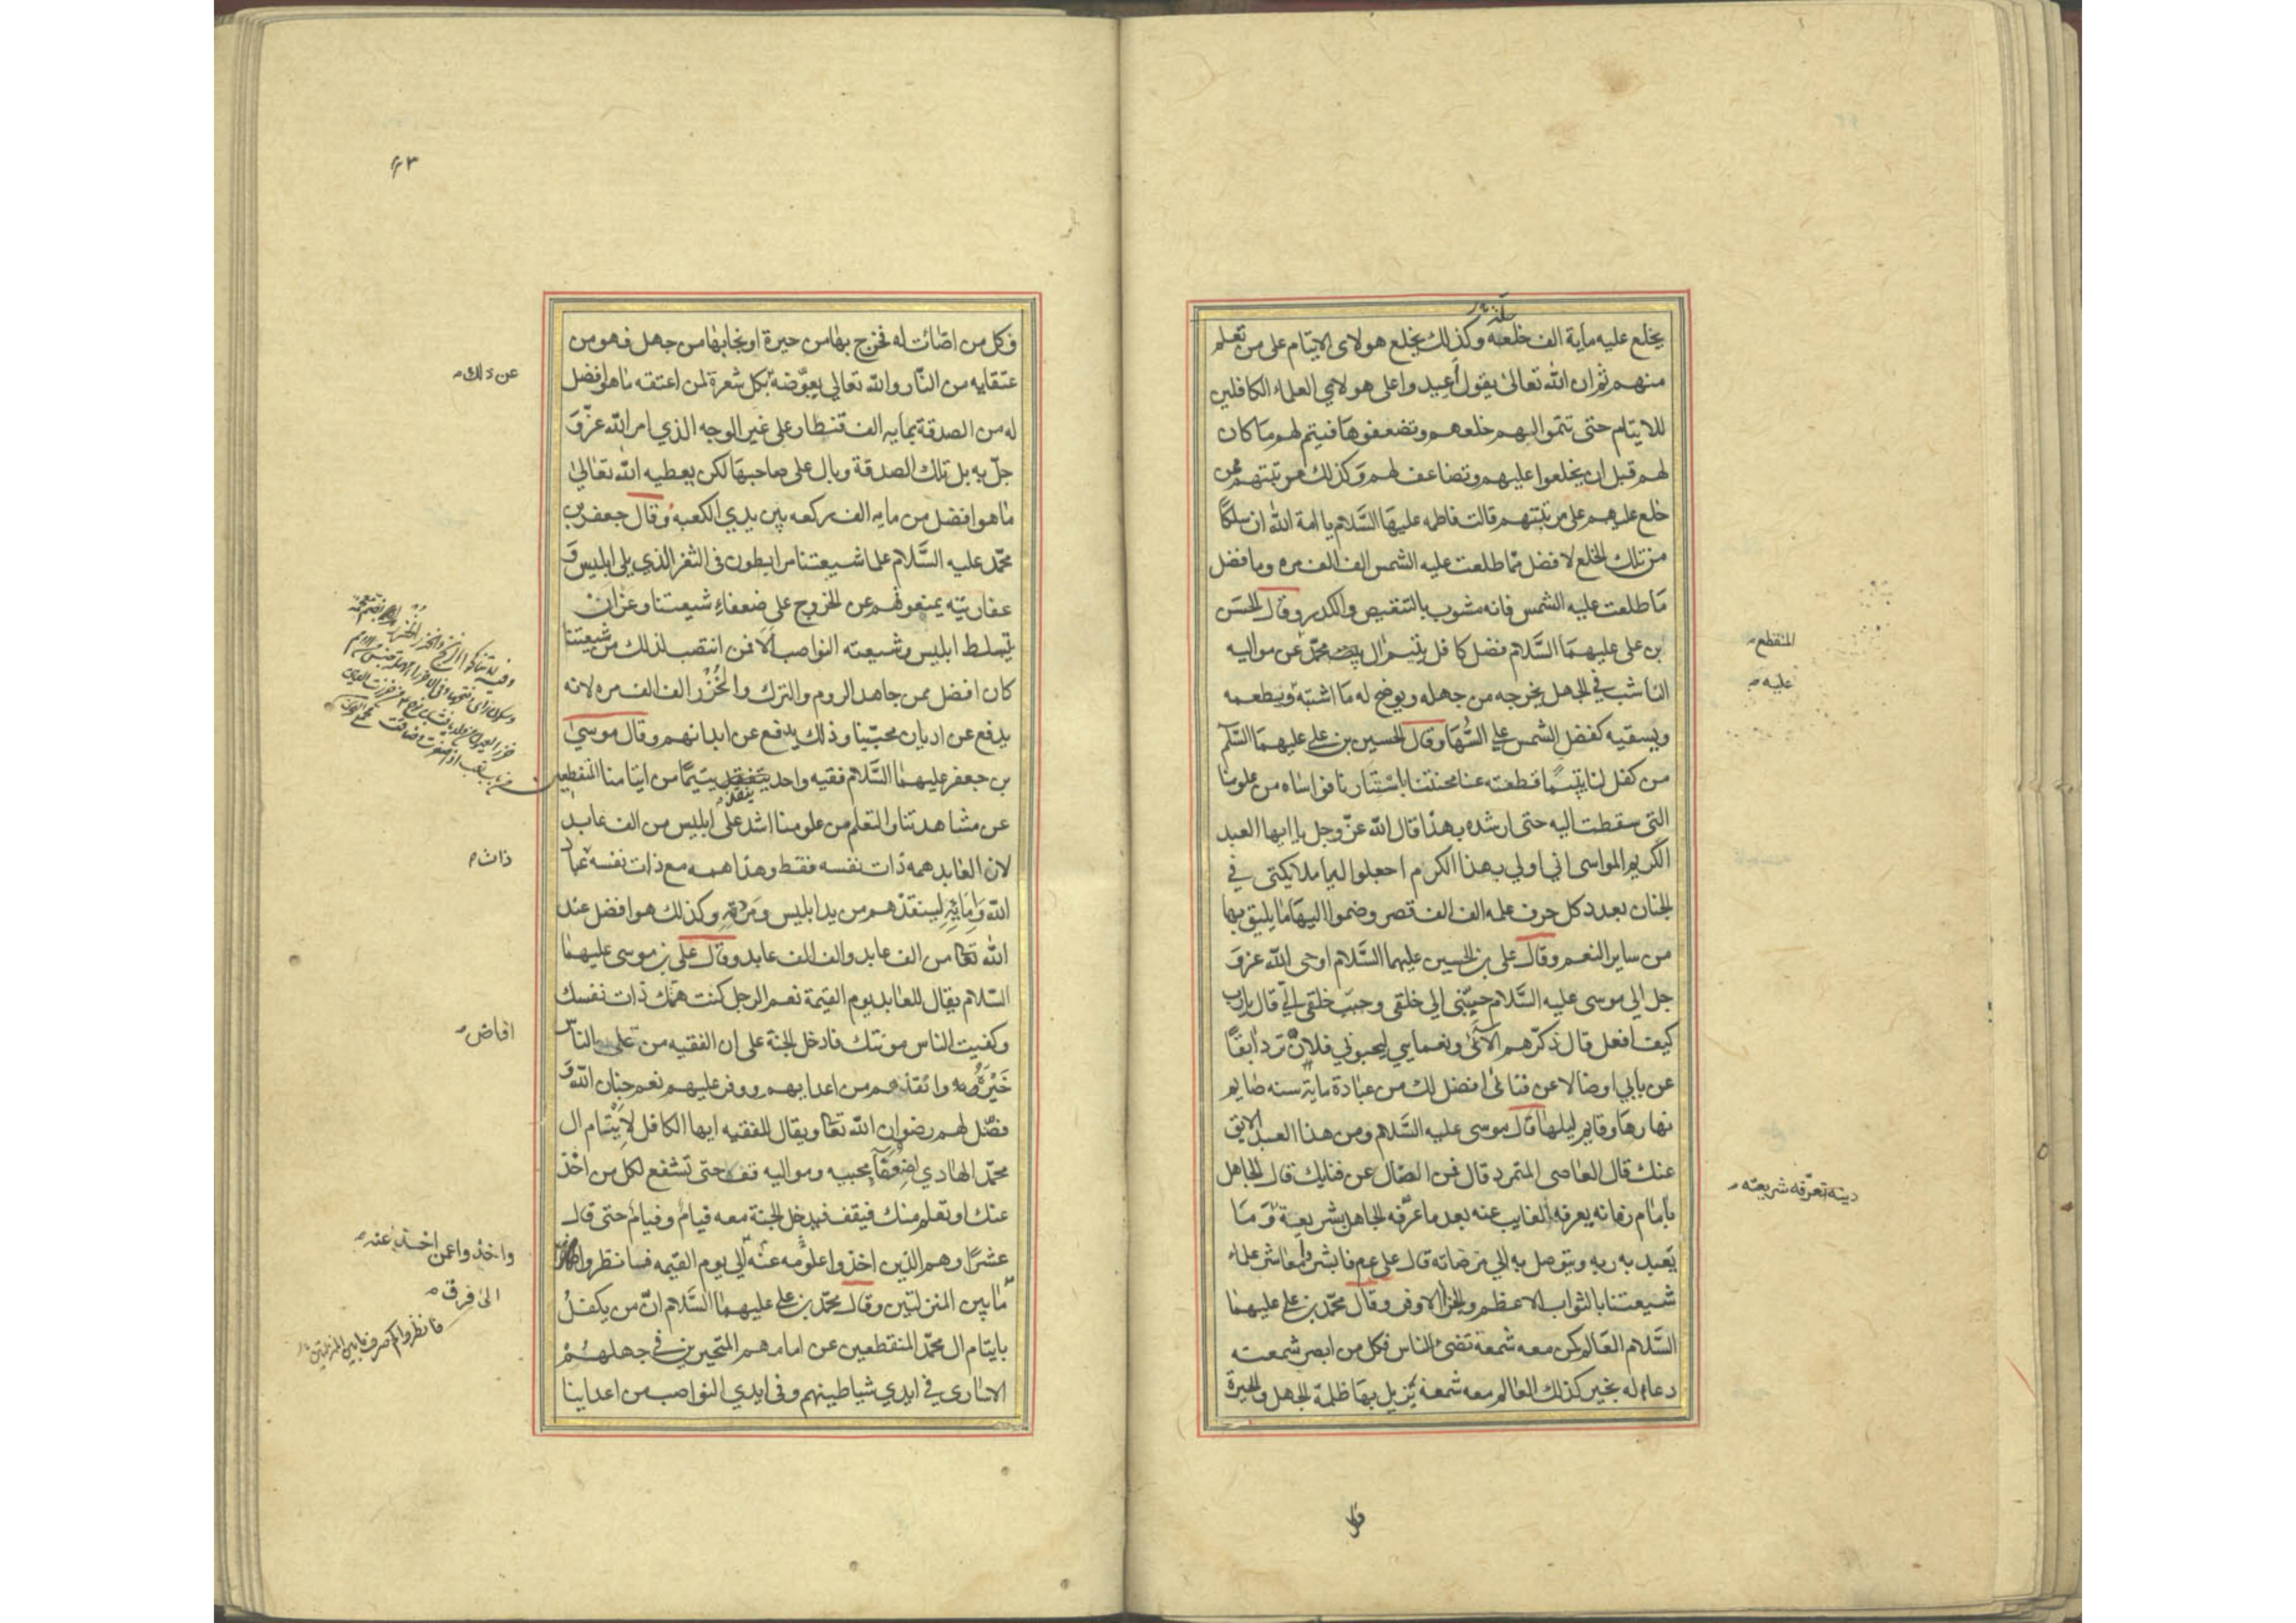 يخلع عليه ماية الف خلعة وكذلك يخلع هولاى الايتام على من تعلم
منهم ثم ان الله تعالى يقول أعيدوا على هولاى العلماء الكافلين
للايتام حتى تتموا اليهم خلعهم وتضعفوها فيتم لهم ما كان
لهم قبل ان يخلعوا عليهم وتضاعف لهم وكذلك مرتبتهم ممن
خلع عليهم على مرتبتهم قالت فاطمه عليها السلام يا امة الله ان سلكا
من تلك الخلع لافضل مما طلعت عليه الشمس الف الف مره وما فضل
ما طلعت عليه الشمس فانه مشوب بالتنقيص والكدر وقال الحسن
بن على عليهما السلام فضل كافل يتيم ال محمد عن مواليه
المنقطع
الناشب في الجهل يخرجه من جهله ويوضح له ما اشتبه ويطعمه
عليه
ويسقيه كفضل الشمس على السها وقال الحسين بن على عليهما السلم
من كفل لنا يتيما قطعته عنا محنتنا باستتارنا فواساه من علومنا
التى سقطت اليه حتى ارشده بهذا قال الله عز وجل يا ايها العبد
الكريم المواسى اني اولي بهذا الكرم اجعلوا له يا ملايكتى في
الجنان بعدد كل حرف علمه الف الف قصر وضموا اليها ما يليق بها
من ساير النعم وقال على بن الحسين عليهما السلام اوحى الله عز و
جل الي موسى عليه السلام حببنى الي خلقى وحبب خلقى الي قال يارب
كيف افعل قال ذكرهم الآئى ونعمايي ليحبوني فلان ترد ابقا
عن بابي او ضالا عن فنائى افضل لك من عبادة ماية سنه صايم
نهارها وقايم ليلها قال موسى عليه السلام ومن هذا العبد الابق
عنك قال العاصى المتمرد قال فمن الضال عن فنايك قال الجاهل
دينه تعرفه شريعته
بامام زمانه يعرفه الغايب عنه بعد ما عرفه الجاهل بشريعة و ما
يتعبد به ربه ويتوصل به الي مرضاته قال على عم فابشروا معاشر علماء
شيعتنا بالثواب الاعظم والجزا الاوفر وقال محمد بن على عليهما
السلام العالم كمن معه شمعة تضئ الناس فكل من ابصر شمعته
دعا له بخير كذلك العالم معه شمعة تزيل بها ظلمة الجهل والحيرة
٤٣
فكل من اضائت له فخرج بها من حيرة او نجا بها من جهل فهو من
عتقايه من النار والله تعالي يعوضه بكل شعرة لمن اعتقه ما هو افضل
عن ذلك
له من الصدقة بمايه الف قنطار على غير الوجه الذي امر الله عز و
جل به بل تلك الصدقة وبال على صاحبها لكن يعطيه الله تعالى
ما هو افضل من مايه الف ركعه بين يدي الكعبه وقال جعفر بن
محمد عليه السلام علما شيعتنا مرابطون فى الثغر الذي يلى ابليس و
عفاريته يمنعونهم عن الخروج على ضعفاء شيعتنا وعن ان
يتسلط ابليس وشيعته النواصب الا فمن انتصب لذلك من شيعتنا
كان افضل ممن جاهد الروم والترك والخزر الف الف مره لانه
يدفع عن اديان محبينا وذلك يدفع عن ابدانهم وقال موسى
بن جعفر عليهما السلام فقيه واحد ينقذ يتيما من ايتامنا المنقطعين
عن مشاهدتنا والتعلم من علومنا اشد على ابليس من الف عابد
لان العابد همه ذات نفسه فقط وهذا همه مع ذات نفسه عباد
ذات
الله وامائه لينقذهم من يد ابليس ومردته وكذلك هو افضل عند
الله تعا من الف عابد والف الف عابد وقال على بن موسى عليهما
السلام يقال للعابد يوم القيمة نعم الرجل كنت همتك ذات نفسك
وكفيت الناس مونتك فادخل الجنة على ان الفقيه من على الناس
افاض
خيره وانقذهم من اعدايهم ووفر عليهم نعم جنان الله و
فضل لهم رضوان الله تعا ويقال للفقيه ايها الكافل لايتام ال
محمد الهادي لضعفآء محبيه ومواليه قف حتى تشفع لكل من اخذ
عنك او تعلم منك فيقف فيدخل الجنة معه فيام وفيام حتى قال
عشرا وهم الذين اخذوا علومه عنه الي يوم القيمه فانظروا
واخذوا عمن اخذ عنه
الى فرق
ما بين المنزلتين وقال محمد بن على عليهما السلام ان من يكفل
فانظروا كم صرف ما بين المنزلتين
بايتام ال محمد المنقطعين عن امامهم المتحيرين في جهلهم
الاسارى في ايدي شياطينهم وفى ايدي النواصب من اعداينا